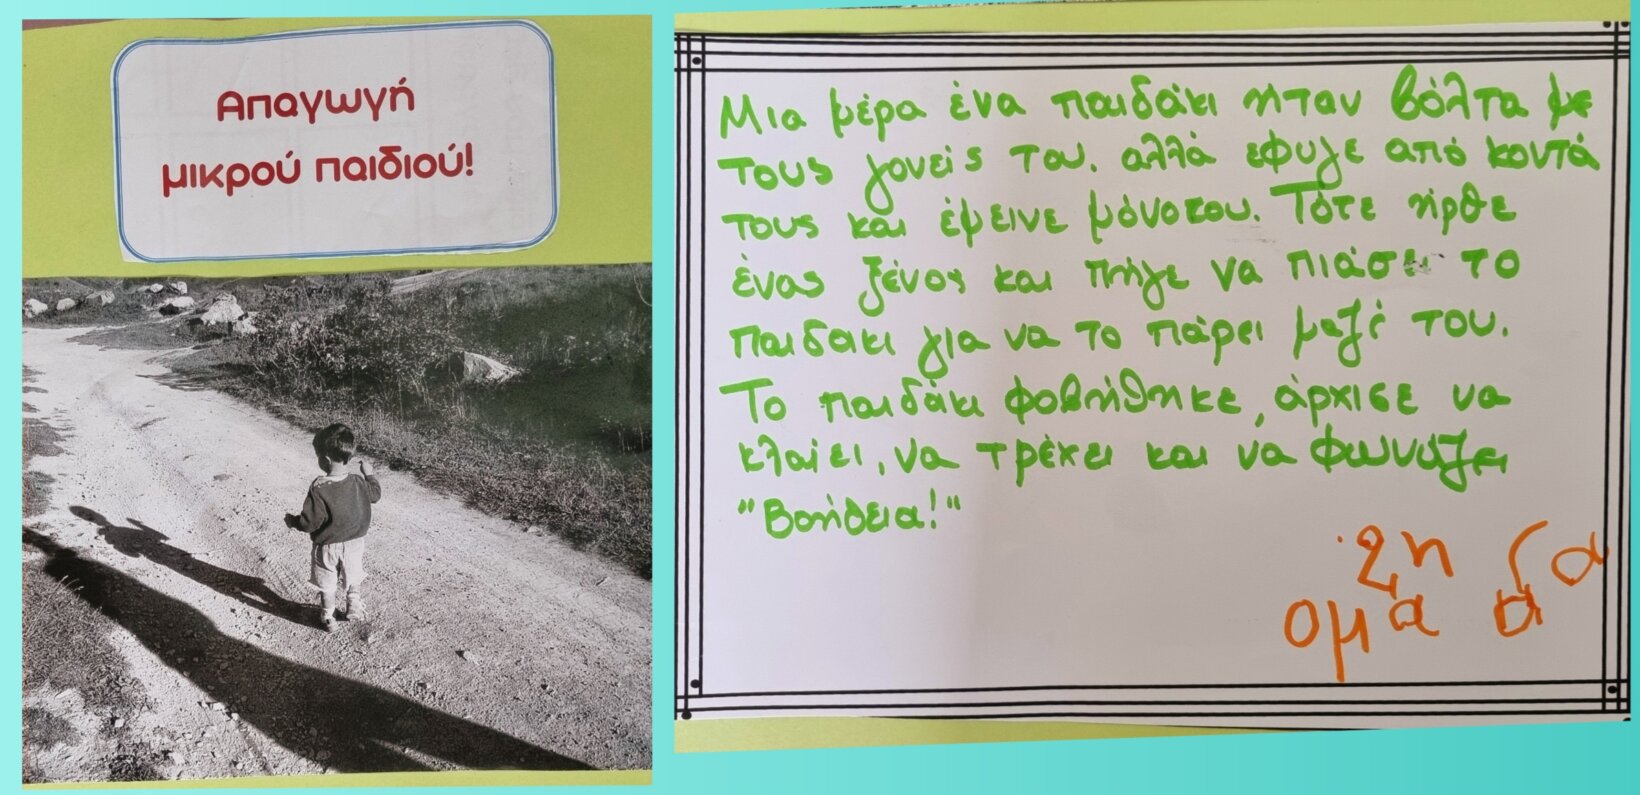 Απαγωγή
μικρού παιδιού!
Μια μέρα ένα παιδάκι ήταν βόλτα με
τους γονείς του. αλλά εφυγε από κοντά
τους και έμεινε μόνοτου. Τότε ήρθε
ένας ξένος και πήγε να πιάσει το
παιδακι για να το πάρει μαζί του.
Το παιδάκι φοβήθηκε, άρχισε να
κλαίει, να τρέχει και να φωνάζει
"Βοήθεια!"
2η
ομα